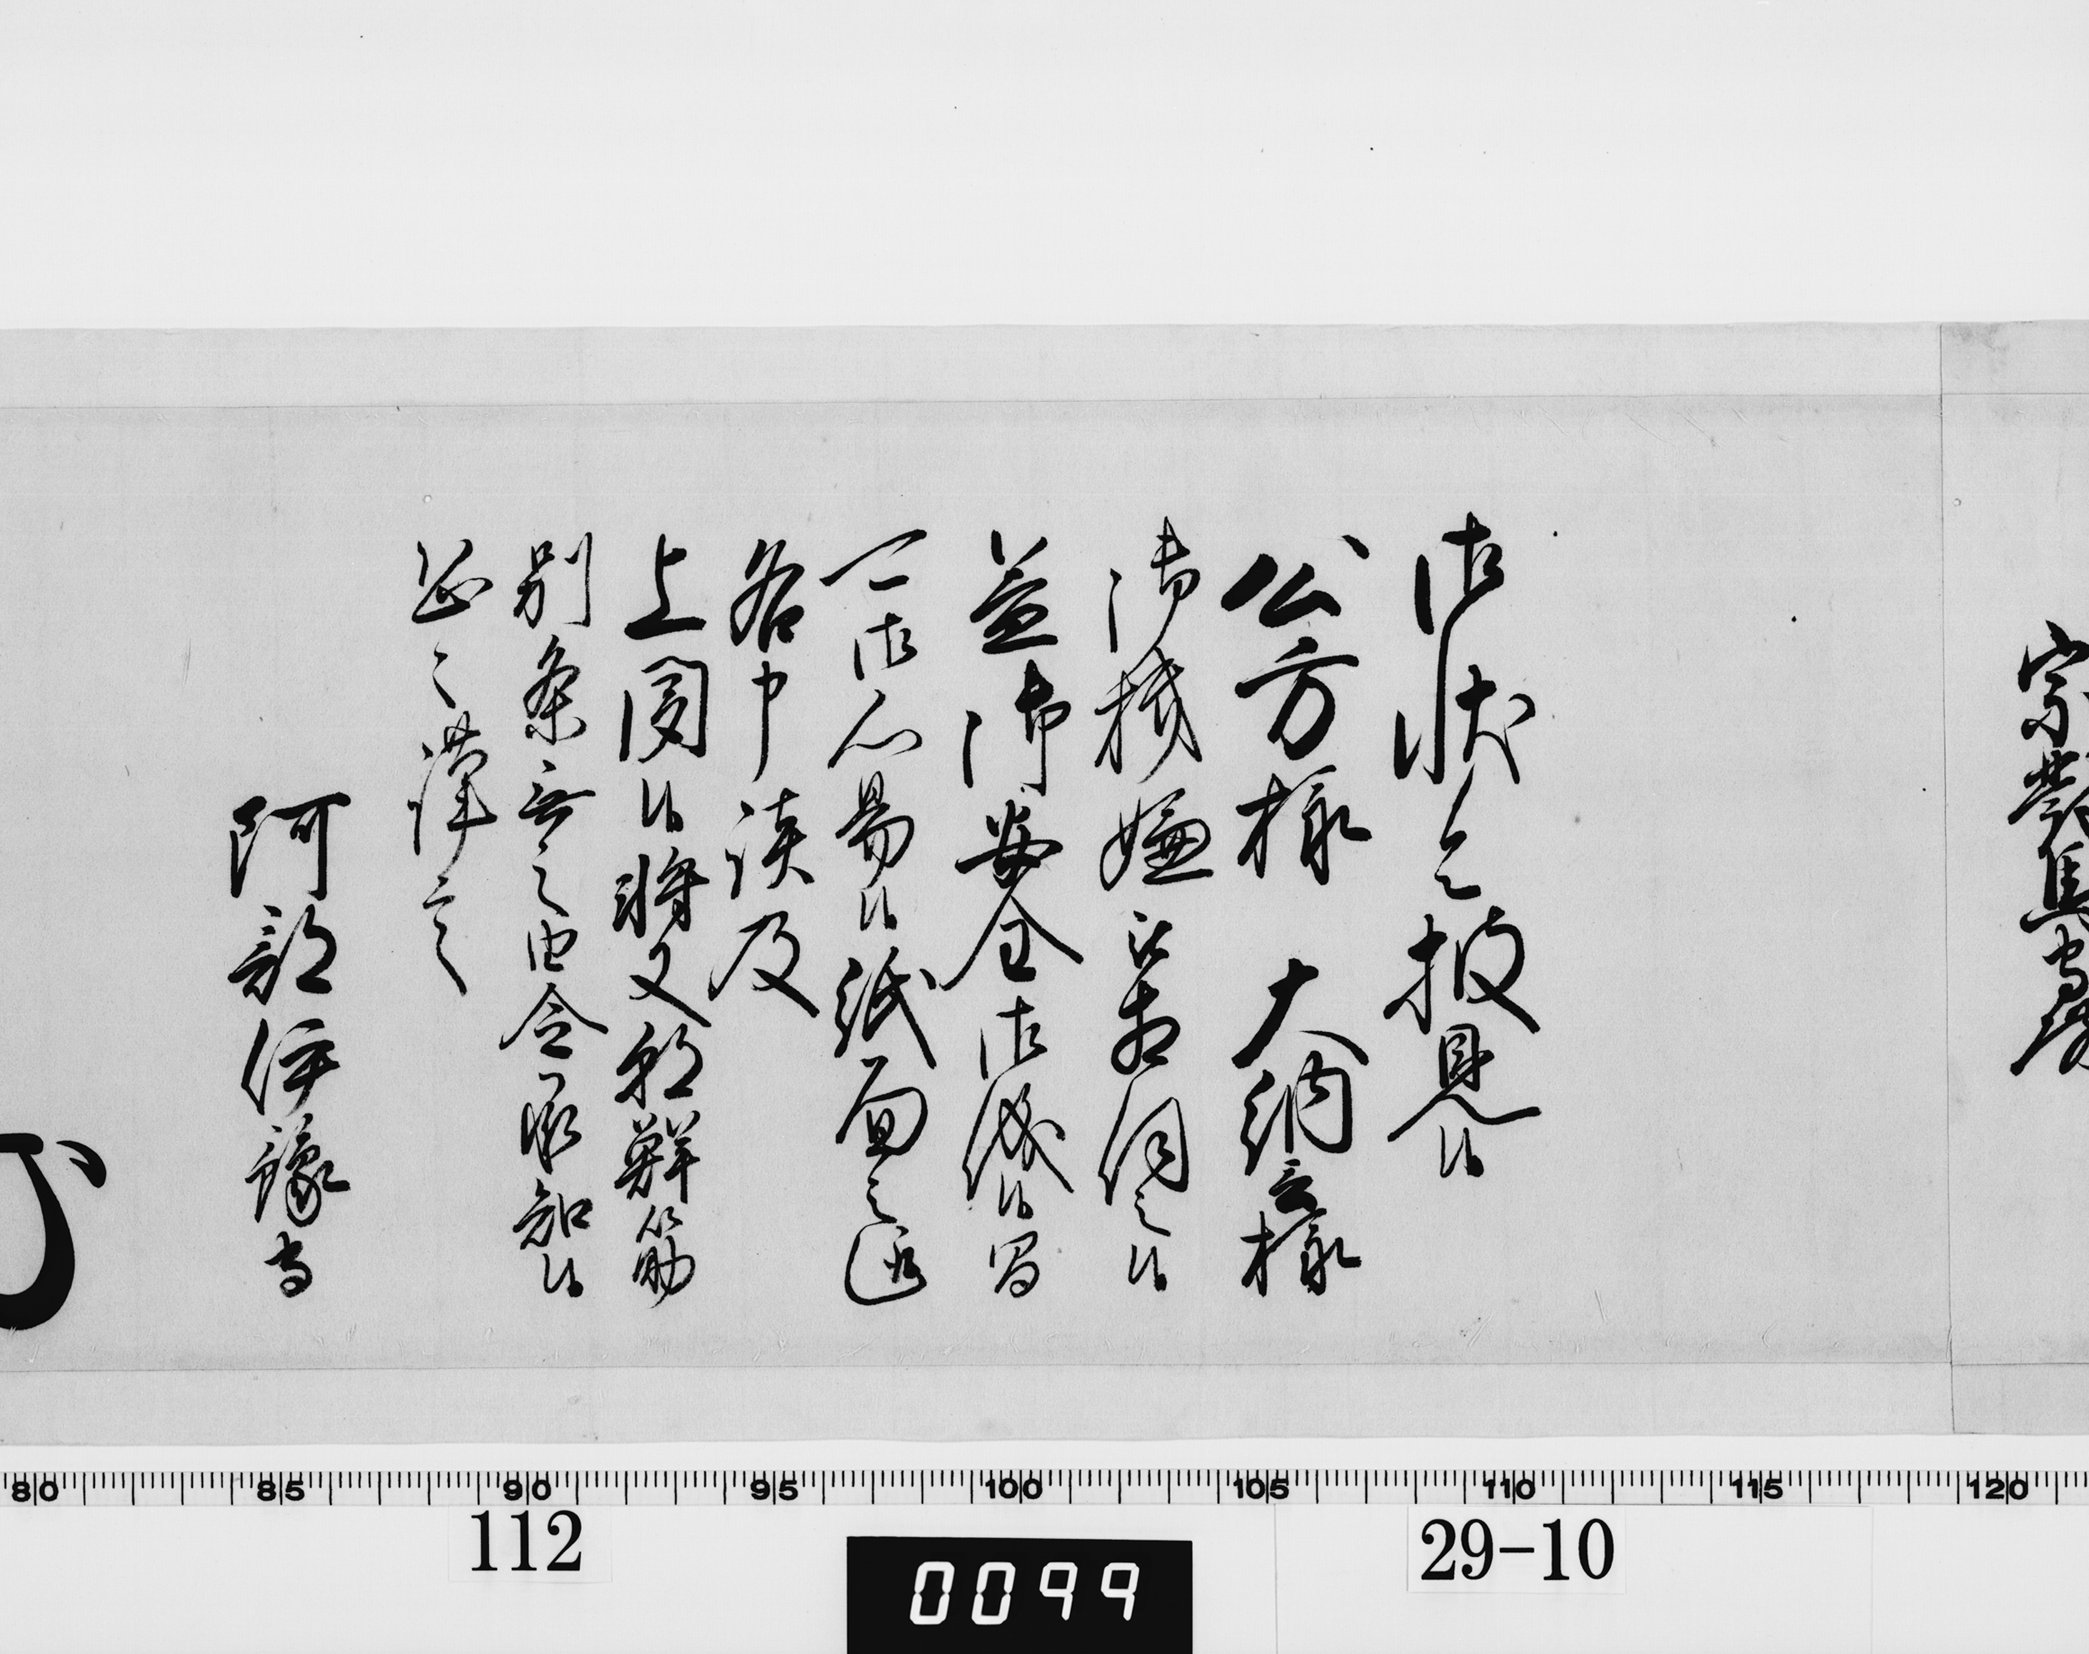 宗對馬守殿
御状令披見候
公方様 大納言様
御機嫌被相伺之候
益御安全御儀候間
可御心易候紙面之趣
各申談及
上聞候将又朝鮮筋
別条無之由令承知候
恐々謹言
阿部伊豫守
80 85 90 95 100 105 110 115 120
112
0099
29-10